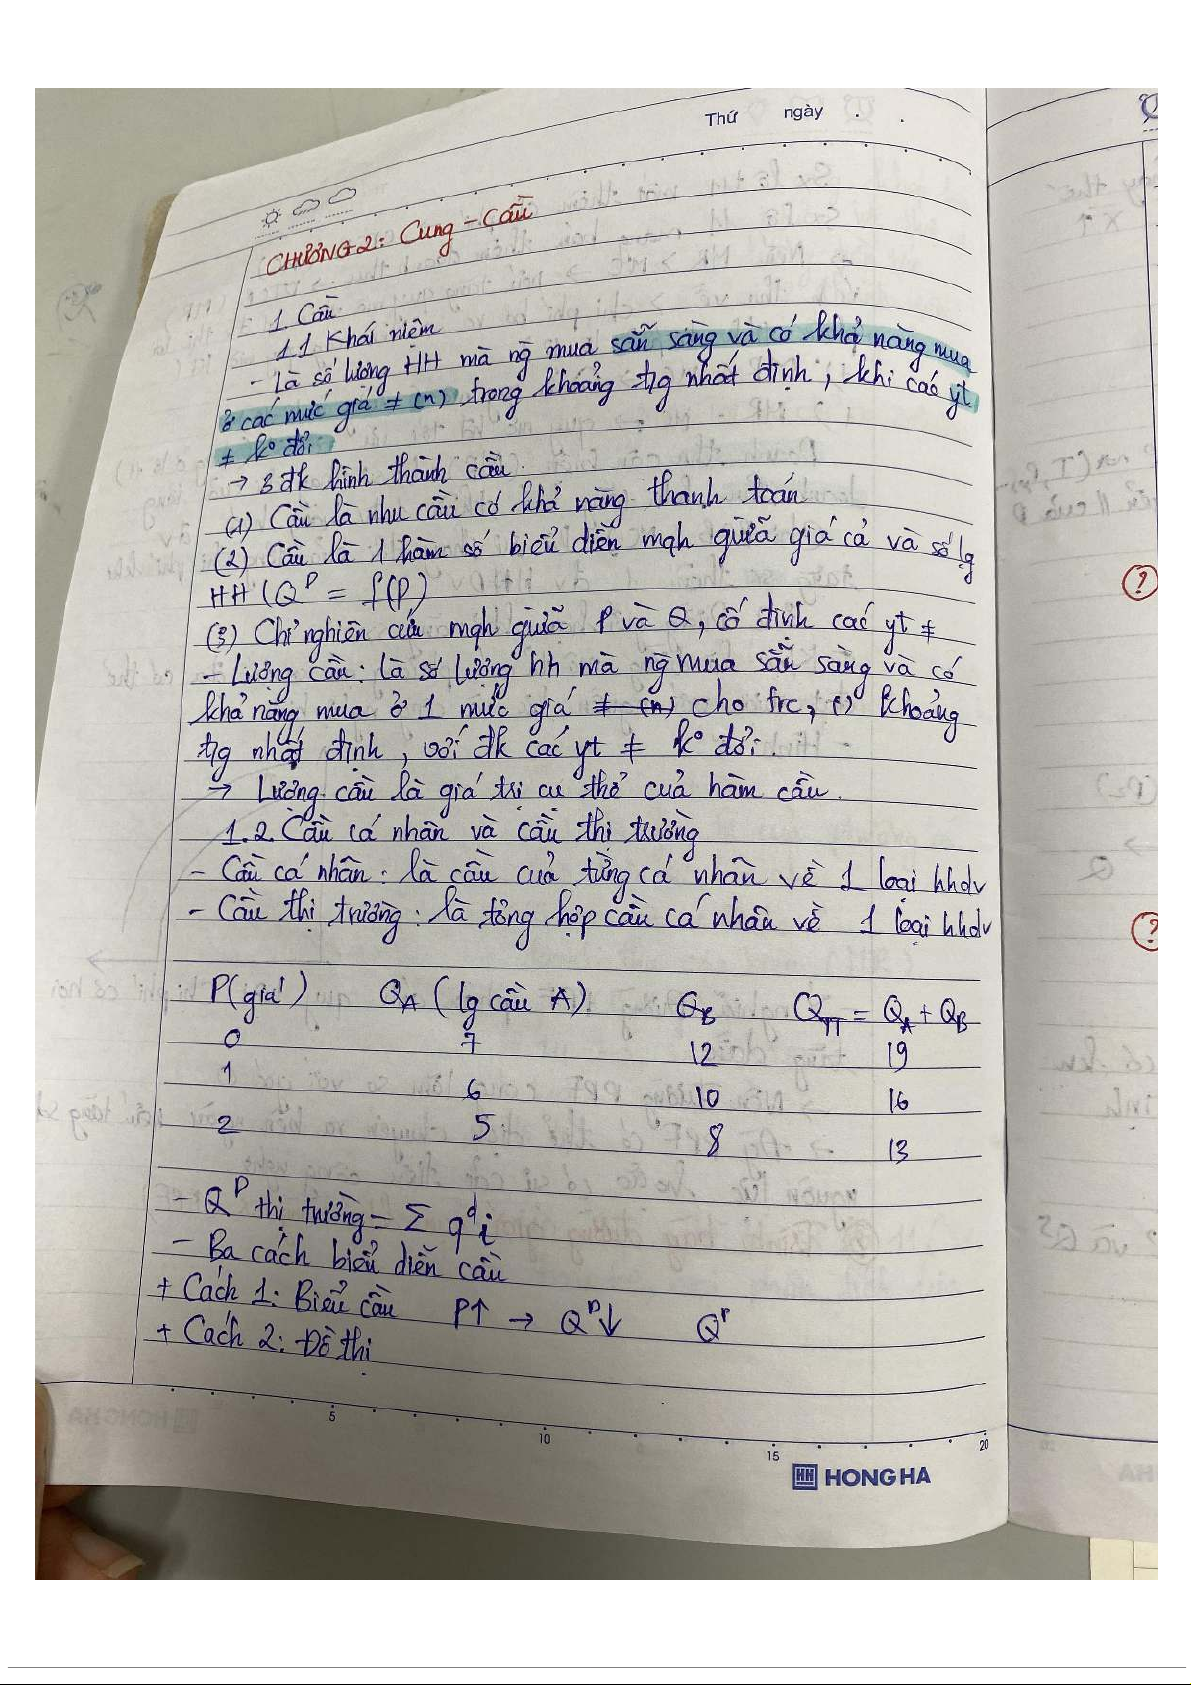 Thứ ngày
CHƯƠNG 2: Cung - Cầu
1. Cầu
1.1 Khái niệm
- Là số lượng HH mà ng mua sẵn sàng và có khả năng mua
ở các mức giá ≠ (n) trong khoảng tg nhất định, khi các yt
≠ ko đổi
→ 3 đk hình thành cầu.
(1) Cầu là nhu cầu có khả năng thanh toán
(2) Cầu là 1 hàm số biểu diễn mqh giữa giá cả và số lg
HH (Q^D = f(P)
(3) Chỉ nghiên cứu mqh giữa P và Q, cố định các yt ≠
- Lượng cầu: là số lượng hh mà ng mua sẵn sàng và có
khả năng mua ở 1 mức giá ≠ (n) cho trc, () khoảng
tg nhất định, với đk các yt ≠ ko đổi.
→ Lượng cầu là giá trị cụ thể của hàm cầu.
1.2. Cầu cá nhân và cầu thị trường
- Cầu cá nhân: là cầu của từng cá nhân về 1 loại hhdv
- Cầu thị trường: là tổng hợp cầu cá nhân về 1 loại hhdv
P(giá) Q_A (lg cầu A) Q_B Q_TT = Q_A + Q_B
0 7 12 19
1 6 10 16
2 5 8 13
- Q^D thị trường = Σ q^d i
- Ba cách biểu diễn cầu
+ Cách 1: Biểu cầu P↑ → Q^D↓
+ Cách 2: Đồ thị
5 10 15 20
HH HONG HA